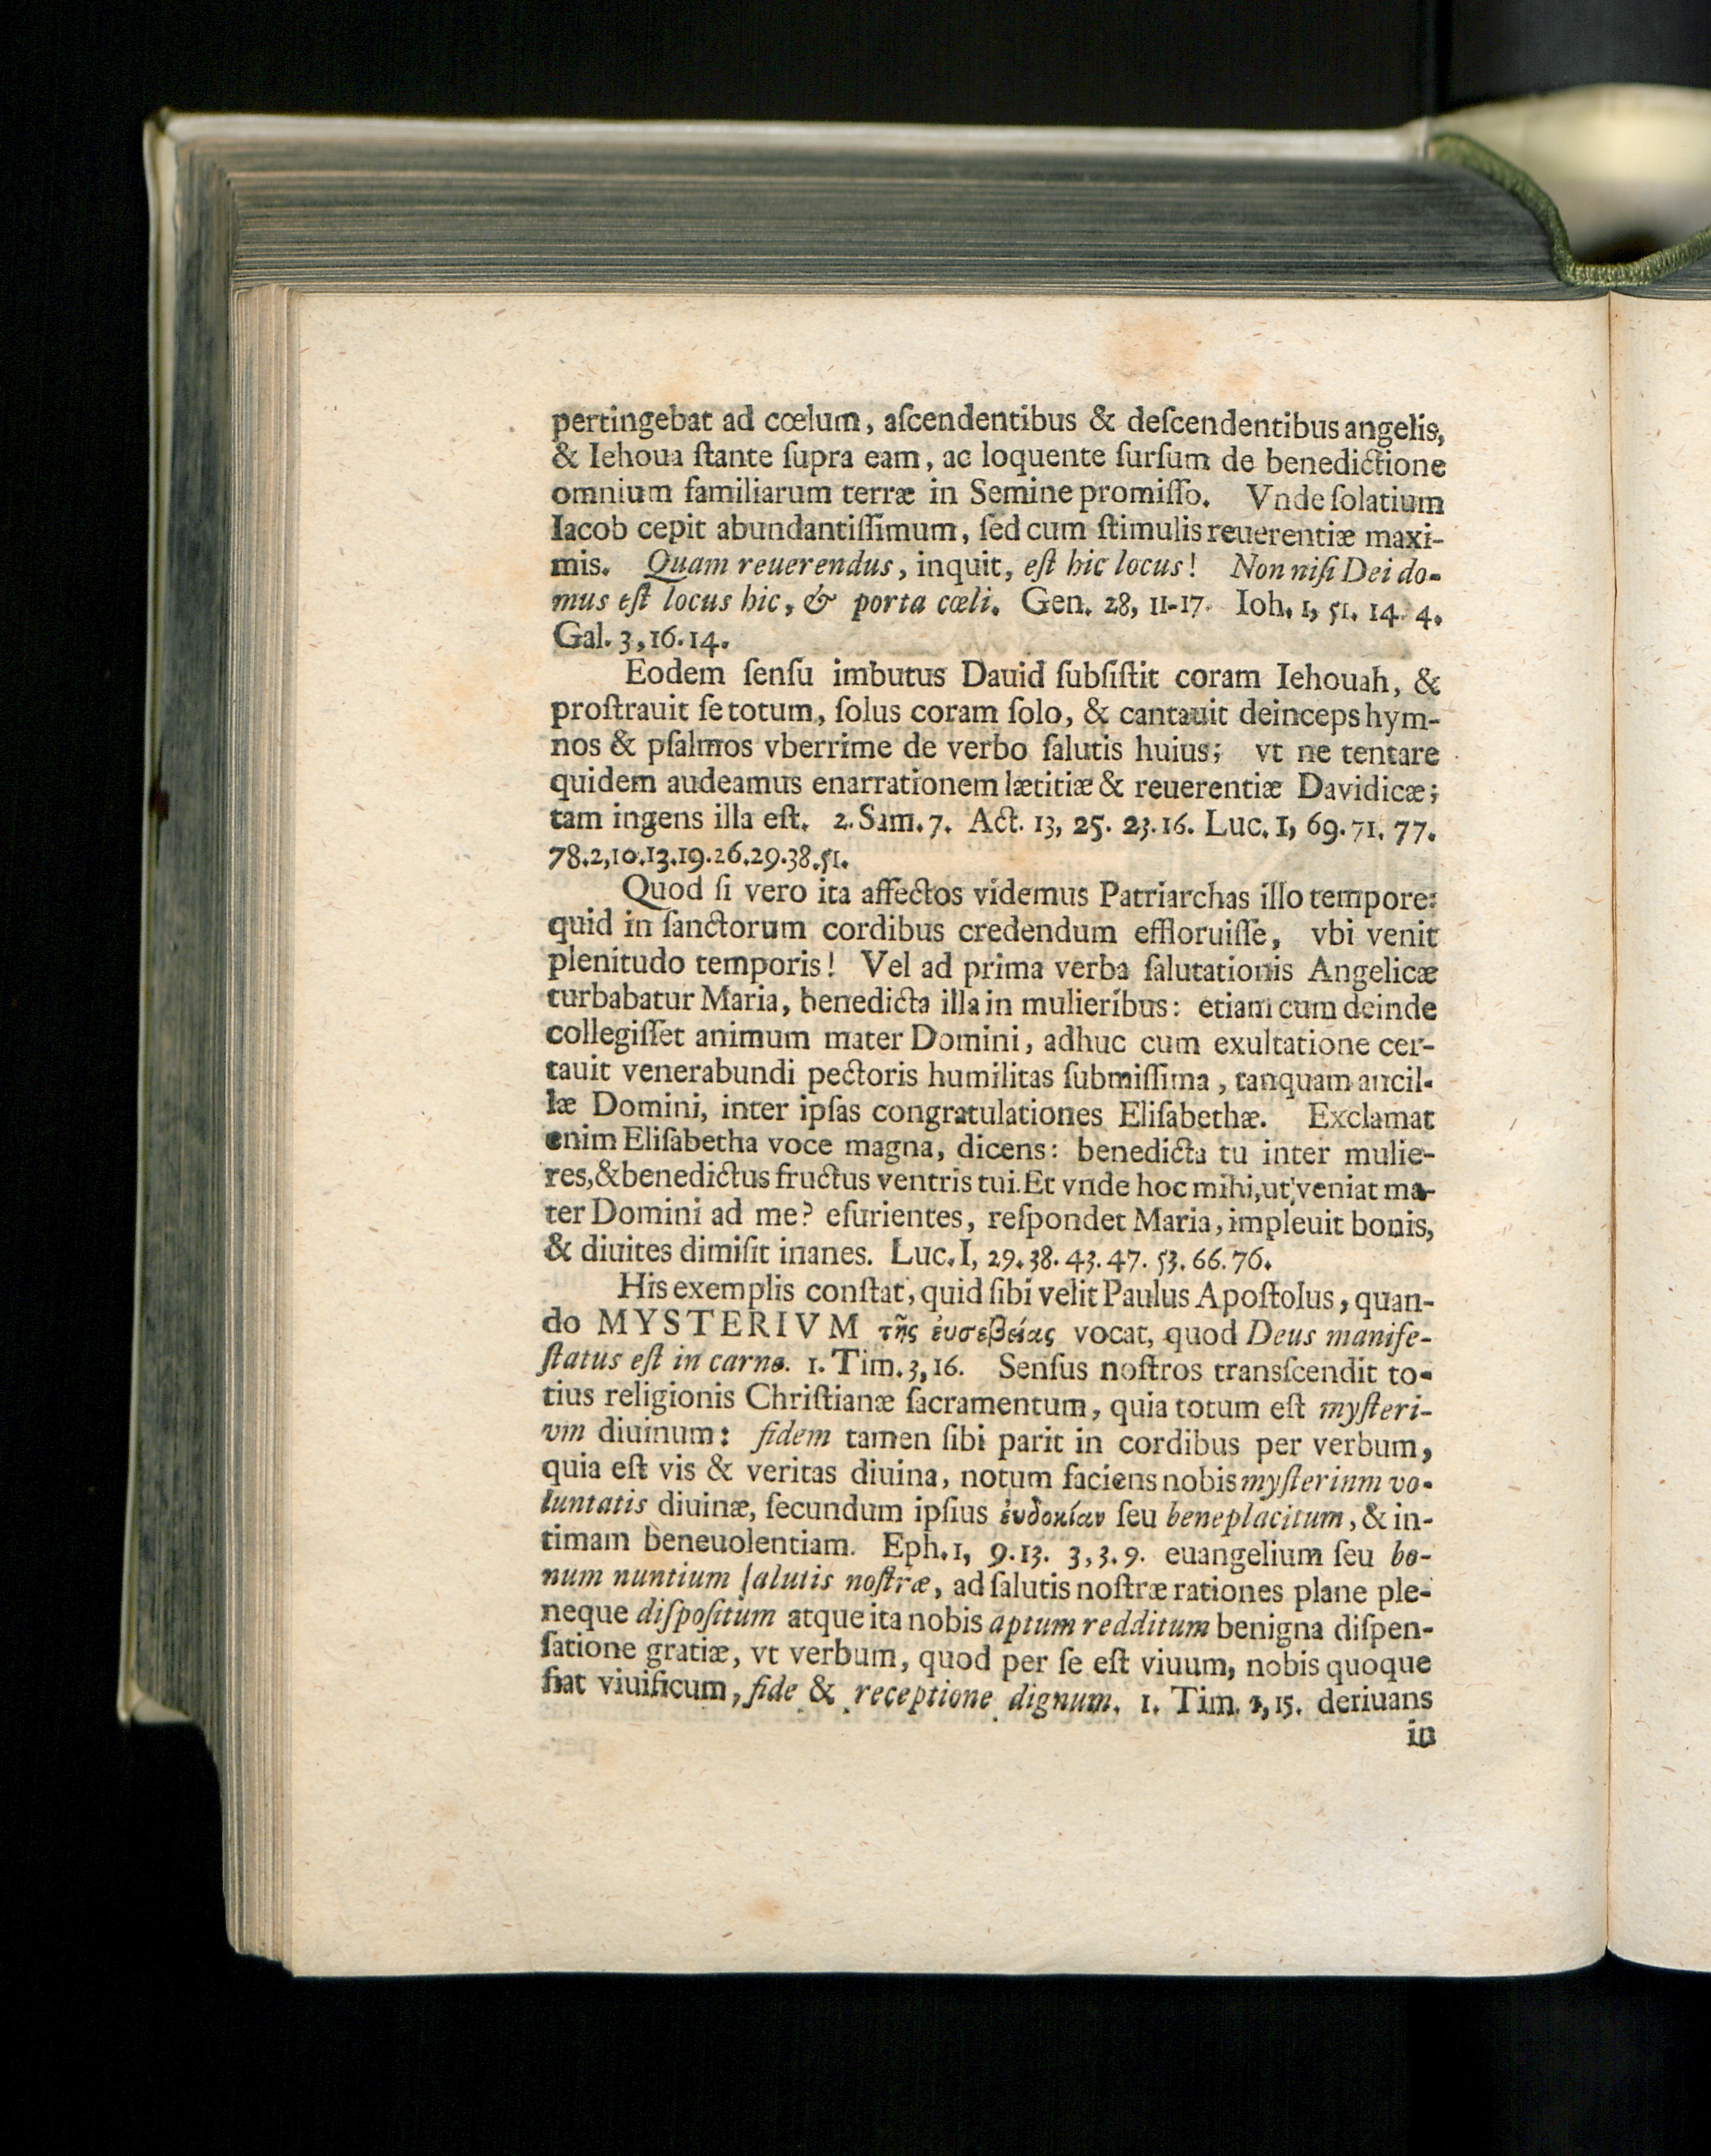 pertingebat ad cœlum, aſcendentibus & deſcendentibus angelis,
& Iehoua ſtante ſupra eam, ac loquente ſurſum de benedictione
omnium familiarum terræ in Semine promiſſo. Vnde ſolatium
Iacob cepit abundantiſſimum, ſed cum ſtimulis reuerentiæ maxi-
mis. Quam reuerendus, inquit, eſt hic locus! Non niſi Dei do-
mus eſt locus hic, & porta cœli. Gen. 28, 11-17. Ioh. 1, 51. 14. 4.
Gal. 3, 16. 14.
Eodem ſenſu imbutus Dauid ſubſiſtit coram Iehouah, &
proſtrauit ſe totum, ſolus coram ſolo, & cantauit deinceps hym-
nos & pſalmos vberrime de verbo ſalutis huius; vt ne tentare
quidem audeamus enarrationem lætitiæ & reuerentiæ Davidicæ;
tam ingens illa eſt. 2. Sam. 7. Act. 13, 25. 23. 16. Luc. I, 69. 71. 77.
78. 2, 10. 13. 19. 26. 29. 38. 51.
Quod ſi vero ita affectos videmus Patriarchas illo tempore:
quid in ſanctorum cordibus credendum effloruiſſe, vbi venit
plenitudo temporis! Vel ad prima verba ſalutationis Angelicæ
turbabatur Maria, benedicta illa in mulieribus: etiam cum deinde
collegiſſet animum mater Domini, adhuc cum exultatione cer-
tauit venerabundi pectoris humilitas ſubmiſſima, tanquam ancil-
læ Domini, inter ipſas congratulationes Eliſabethæ. Exclamat
enim Eliſabetha voce magna, dicens: benedicta tu inter mulie-
res, & benedictus fructus ventris tui. Et vnde hoc mihi, ut veniat ma-
ter Domini ad me? eſurientes, reſpondet Maria, impleuit bonis,
& diuites dimiſit inanes. Luc. I, 29. 38. 43. 47. 53. 66. 76.
His exemplis conſtat, quid ſibi velit Paulus Apoſtolus, quan-
do MYSTERIVM τῆς ἐυσεβείας vocat, quod Deus manife-
ſtatus eſt in carne. 1. Tim. 3, 16. Senſus noſtros transſcendit to-
tius religionis Chriſtianæ ſacramentum, quia totum eſt myſteri-
vm diuinum: fidem tamen ſibi parit in cordibus per verbum,
quia eſt vis & veritas diuina, notum faciens nobis myſterinm vo-
luntatis diuinæ, ſecundum ipſius ἐυδοκίαν ſeu beneplacitum, & in-
timam beneuolentiam. Eph. 1, 9. 13. 3, 3. 9. euangelium ſeu bo-
num nuntium ſalutis noſtræ, ad ſalutis noſtræ rationes plane ple-
neque diſpoſitum atque ita nobis aptum redditum benigna diſpen-
ſatione gratiæ, vt verbum, quod per ſe eſt viuum, nobis quoque
fiat viuificum, fide & receptione dignum. 1. Tim. 1, 15. deriuans
in